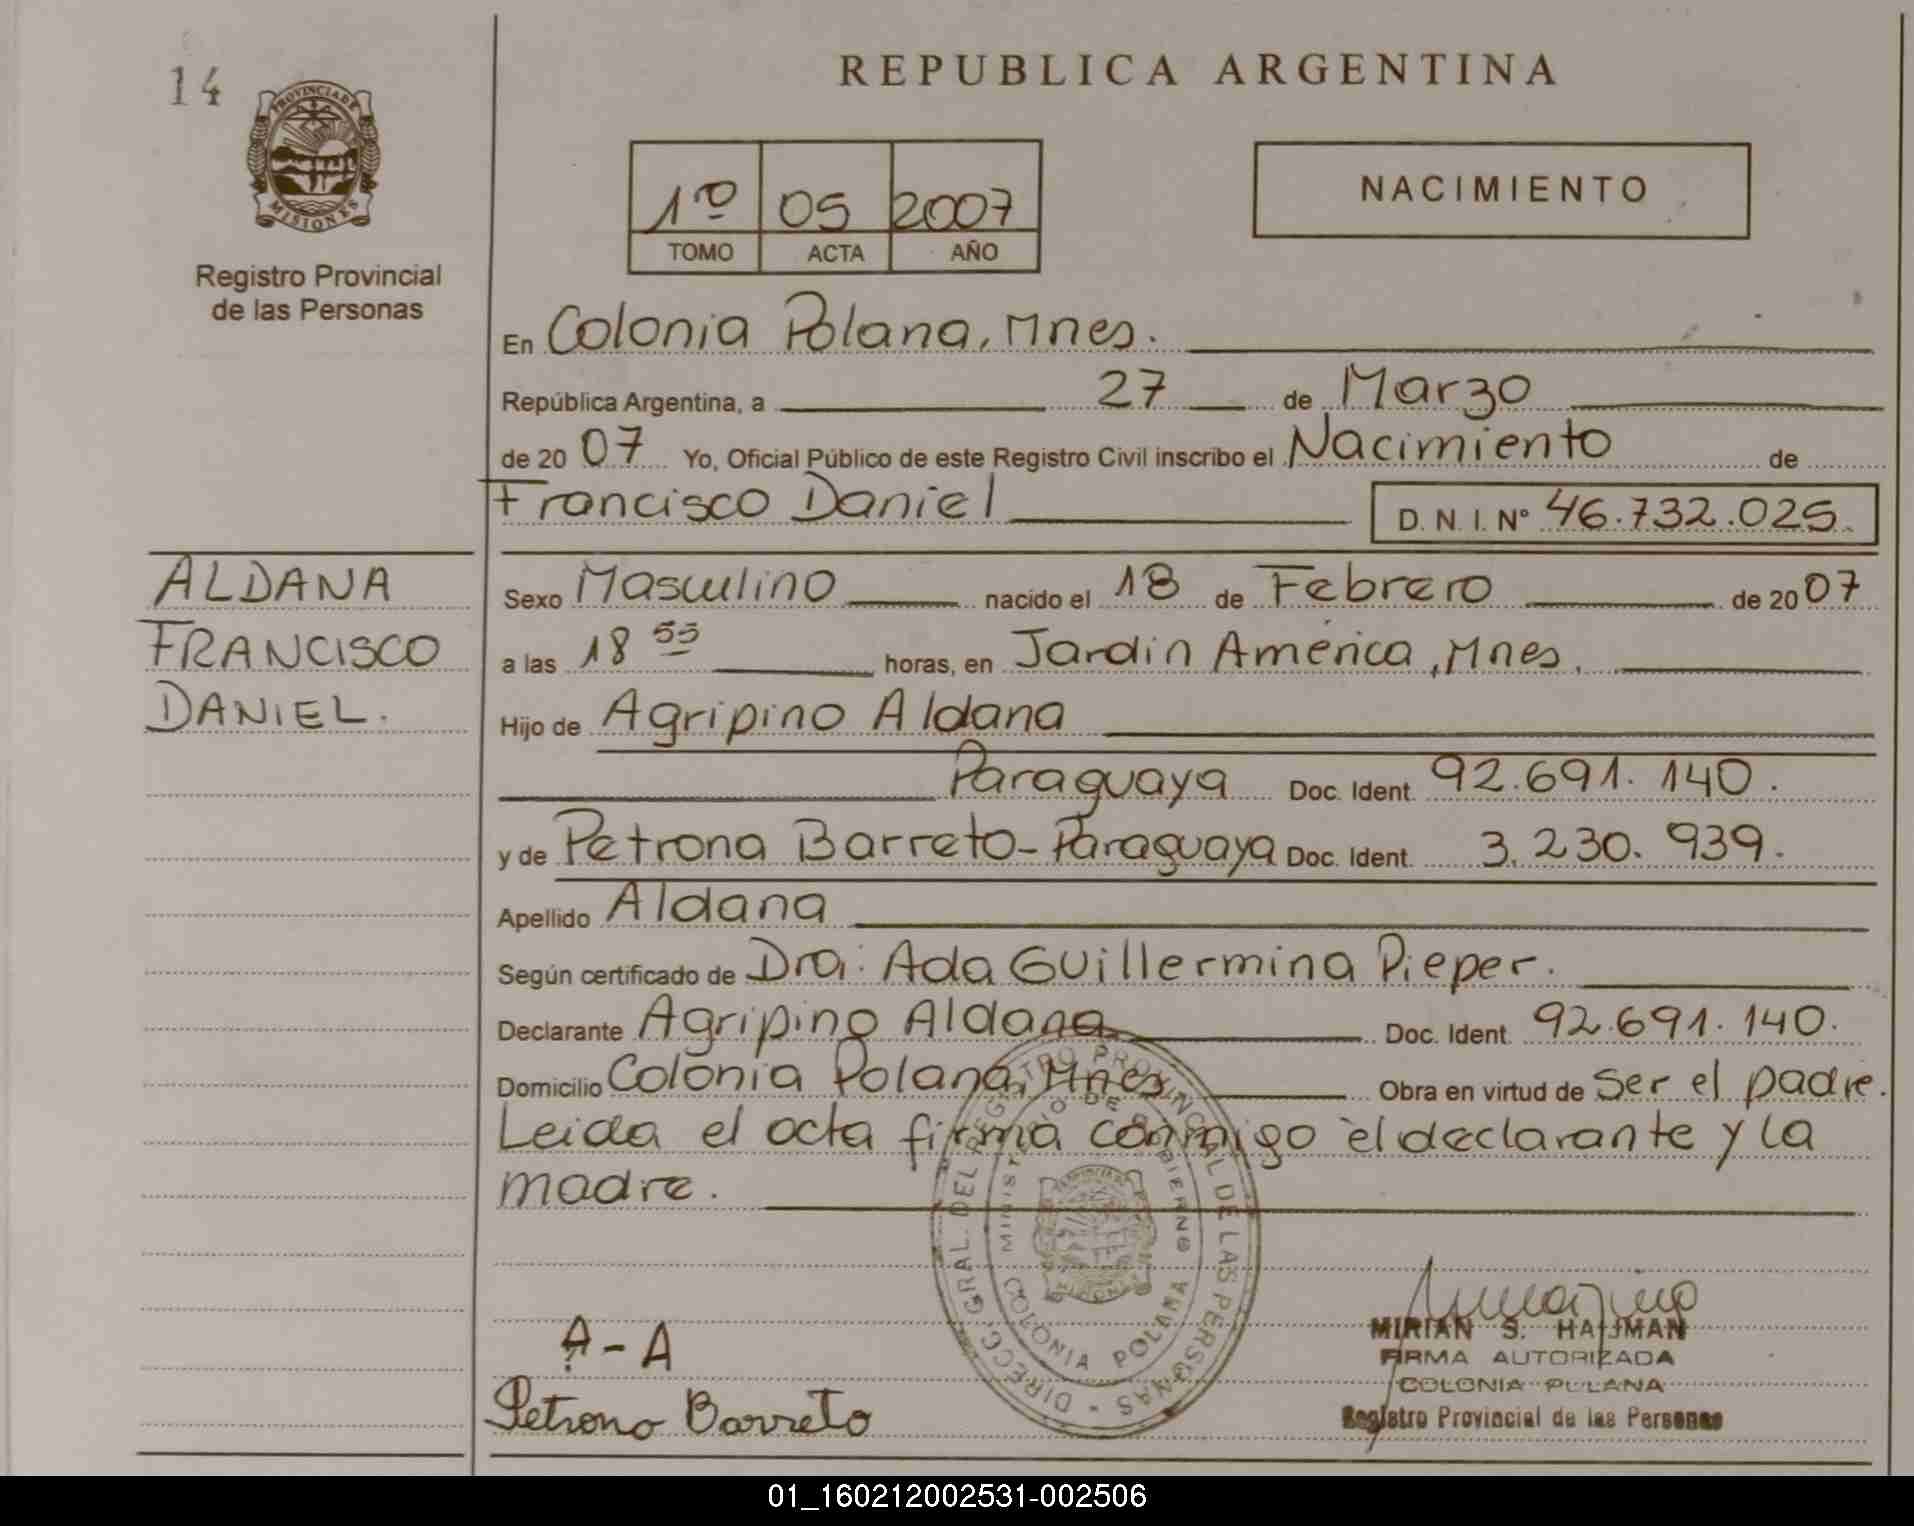 14
PROVINCIA DE
MISIONES
Registro Provincial
de las Personas
REPUBLICA ARGENTINA
1º 05 2007
TOMO ACTA AÑO
NACIMIENTO
En Colonia Polana, Mnes.
República Argentina, a 27 de Marzo
de 20 07 Yo, Oficial Público de este Registro Civil inscribo el Nacimiento de
Francisco Daniel D. N. I. Nº 46.732.025.
ALDANA
FRANCISCO
DANIEL.
Sexo Masculino nacido el 18 de Febrero de 20 07
a las 18 55 horas, en Jardín América, Mnes.
Hijo de Agripino Aldana
Paraguaya Doc. Ident. 92.691.140.
y de Petrona Barreto - Paraguaya Doc. Ident. 3.230.939.
Apellido Aldana
Según certificado de Dra: Ada Guillermina Pieper.
Declarante Agripino Aldana Doc. Ident. 92.691.140.
Domicilio Colonia Polana, Mnes Obra en virtud de Ser el padre.
Leida el acta firma conmigo el declarante y la
madre.
DIRECC. GRAL. DEL REGISTRO PROVINCIAL DE LAS PERSONAS -
MINISTERIO DE GOBIERNO
COLONIA POLANA
A - A
Petrona Barreto
MIRIAN S.
FIRMA AUTORIZADA
COLONIA POLANA
Registro Provincial de las Personas
01_160212002531-002506